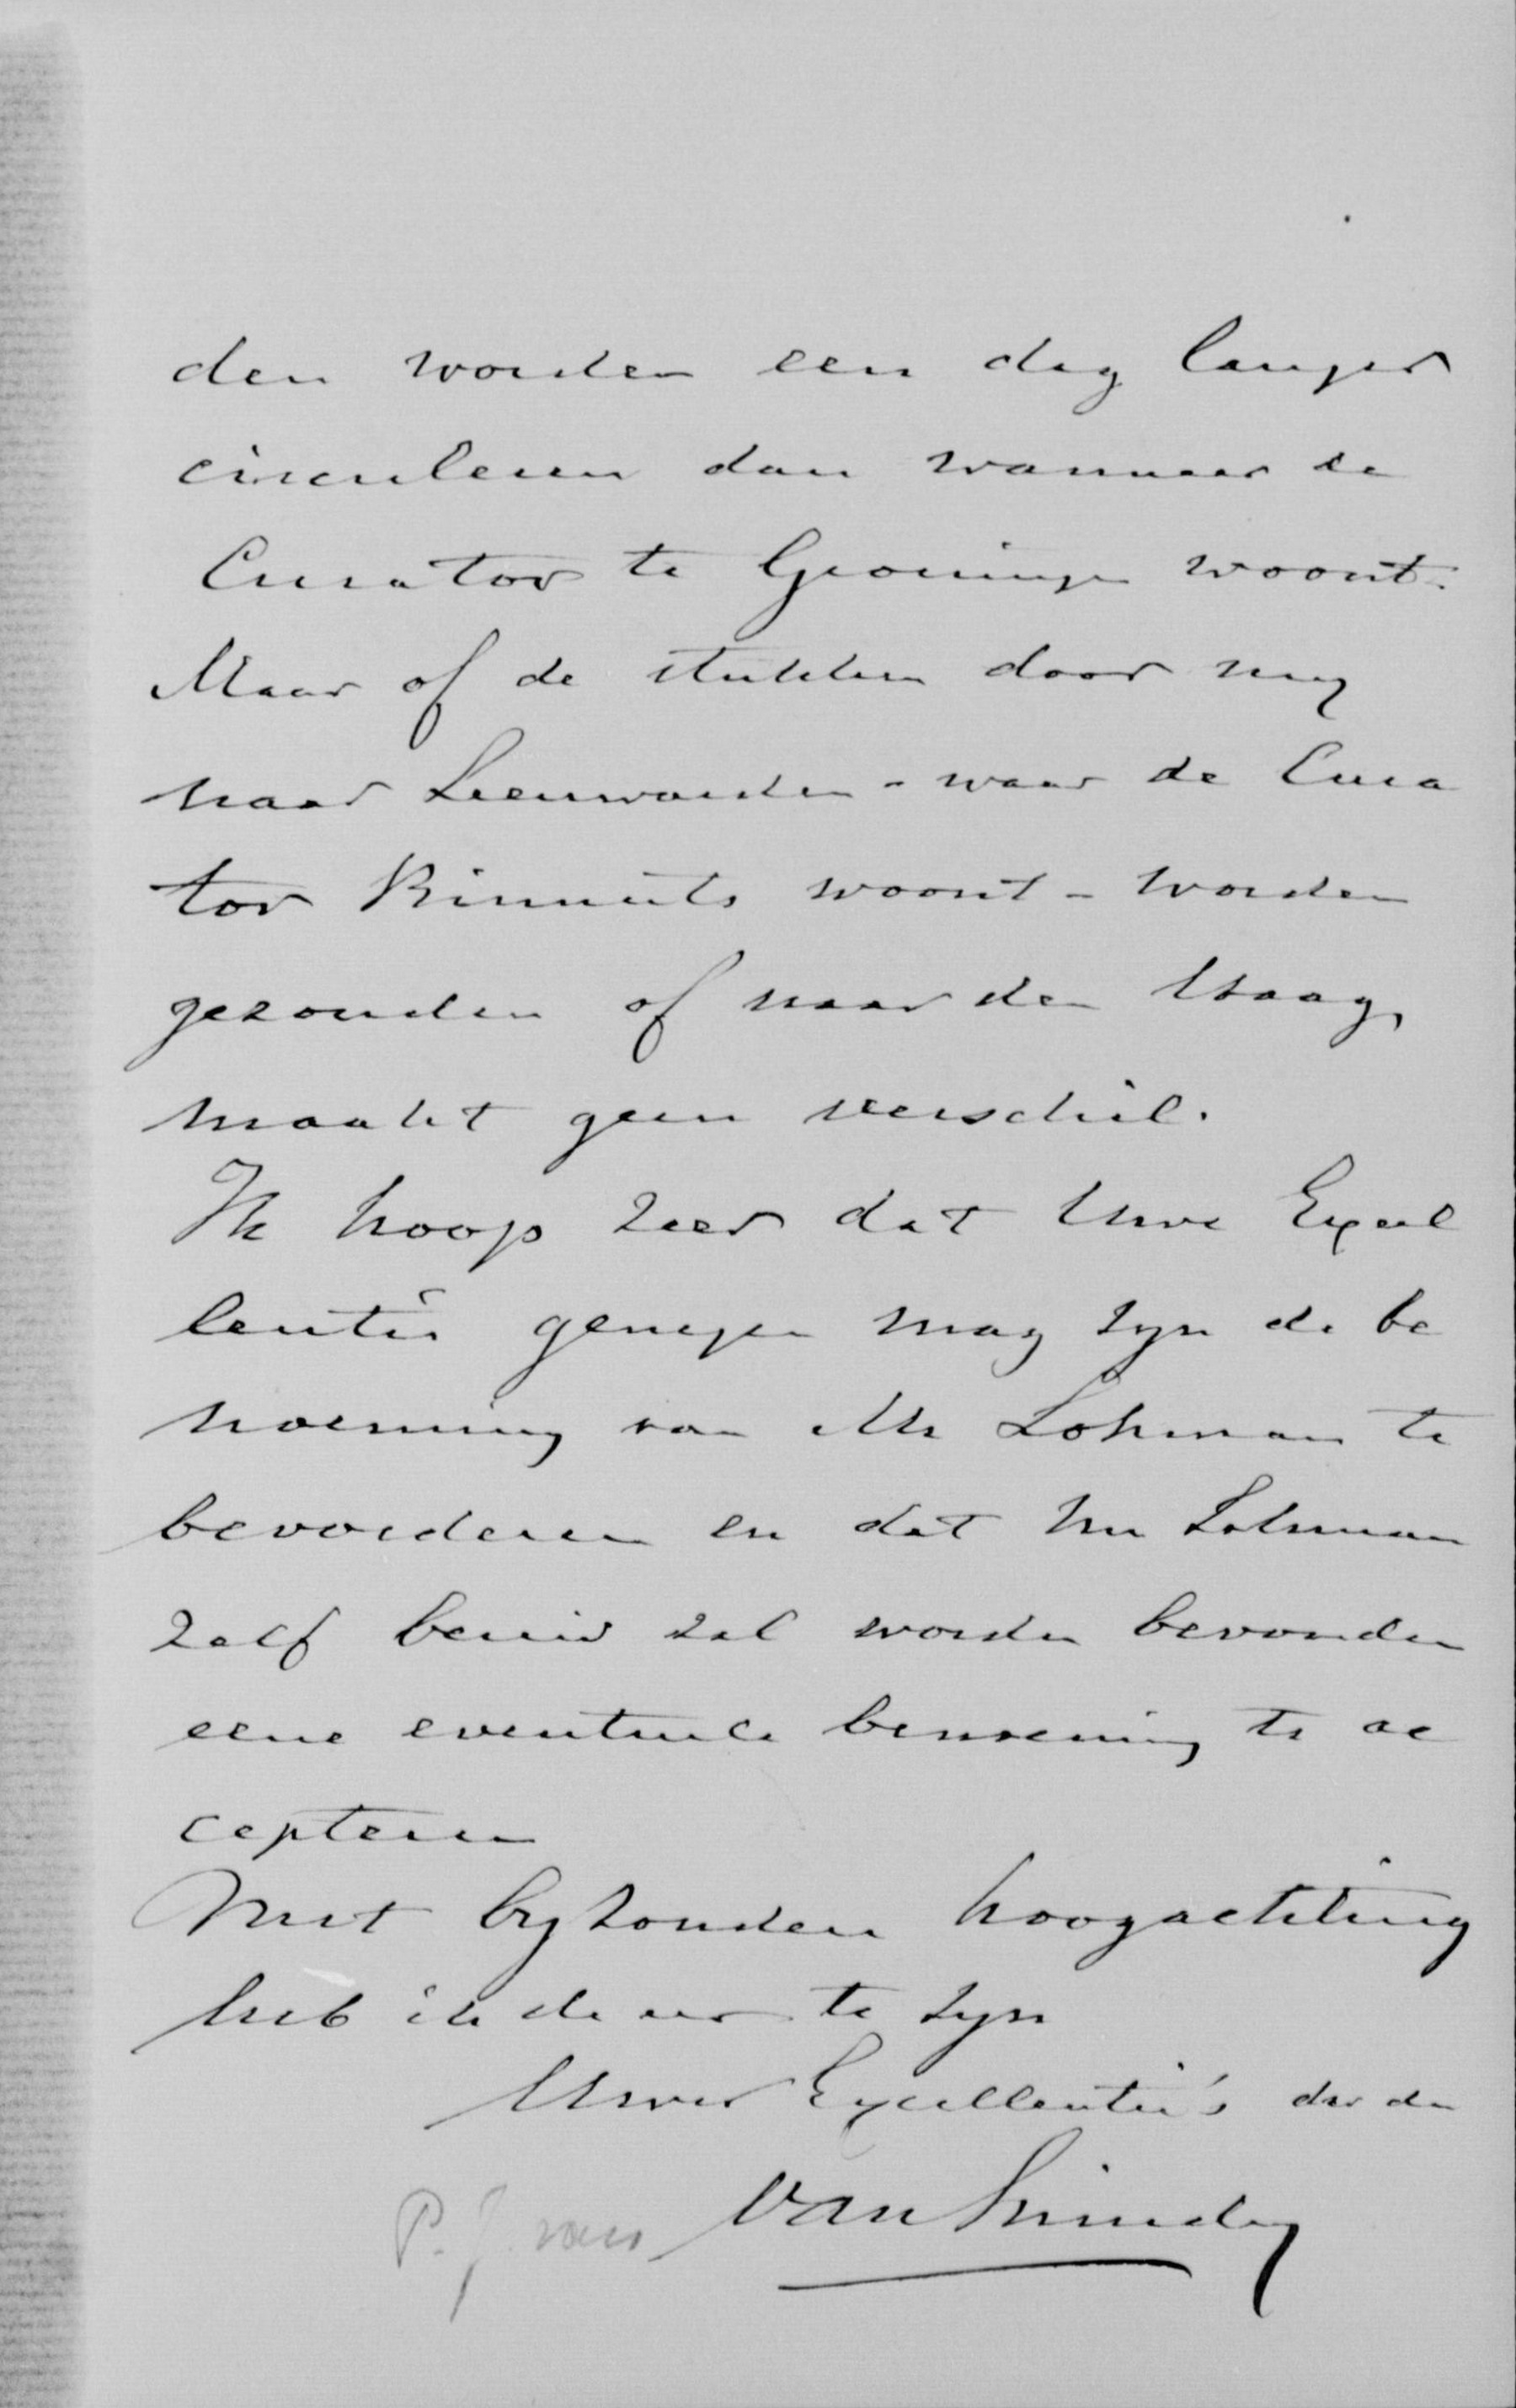 den worden een dag langer
circuleren dan wanneer de
Curator te Groningen woont.
Maar of de stukken door my
naar Leeuwarden - waar de Cura
tor woont - worden
gezonden of naar den Haag,
maakt geen verschil.
Ik hoop zeer dat Uwe Excel
lentie genegen mag zyn de be
noeming van Mr Lohman te
bevorderen en dat Mr Lohman
zelf bereid zal worden bevonden
eene eventueele benoeming te ac
cepteren
Met byzondere hoogachting
heb ik de eer te zyn
Uwer Excellentie's dw dn
P. J. van van Swinderen